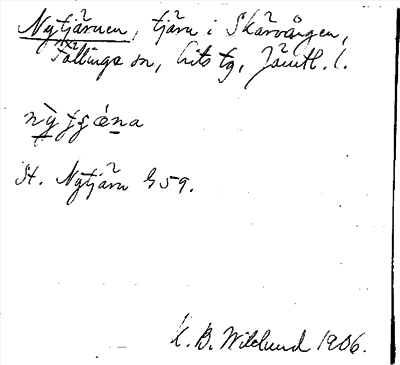 Nytjärnen, tjärn i Skärvången,
Föllinge sn, Lits tg, Jämtl. l.
St. Nytjärn h 59.
K. B. Wiklund 1906.